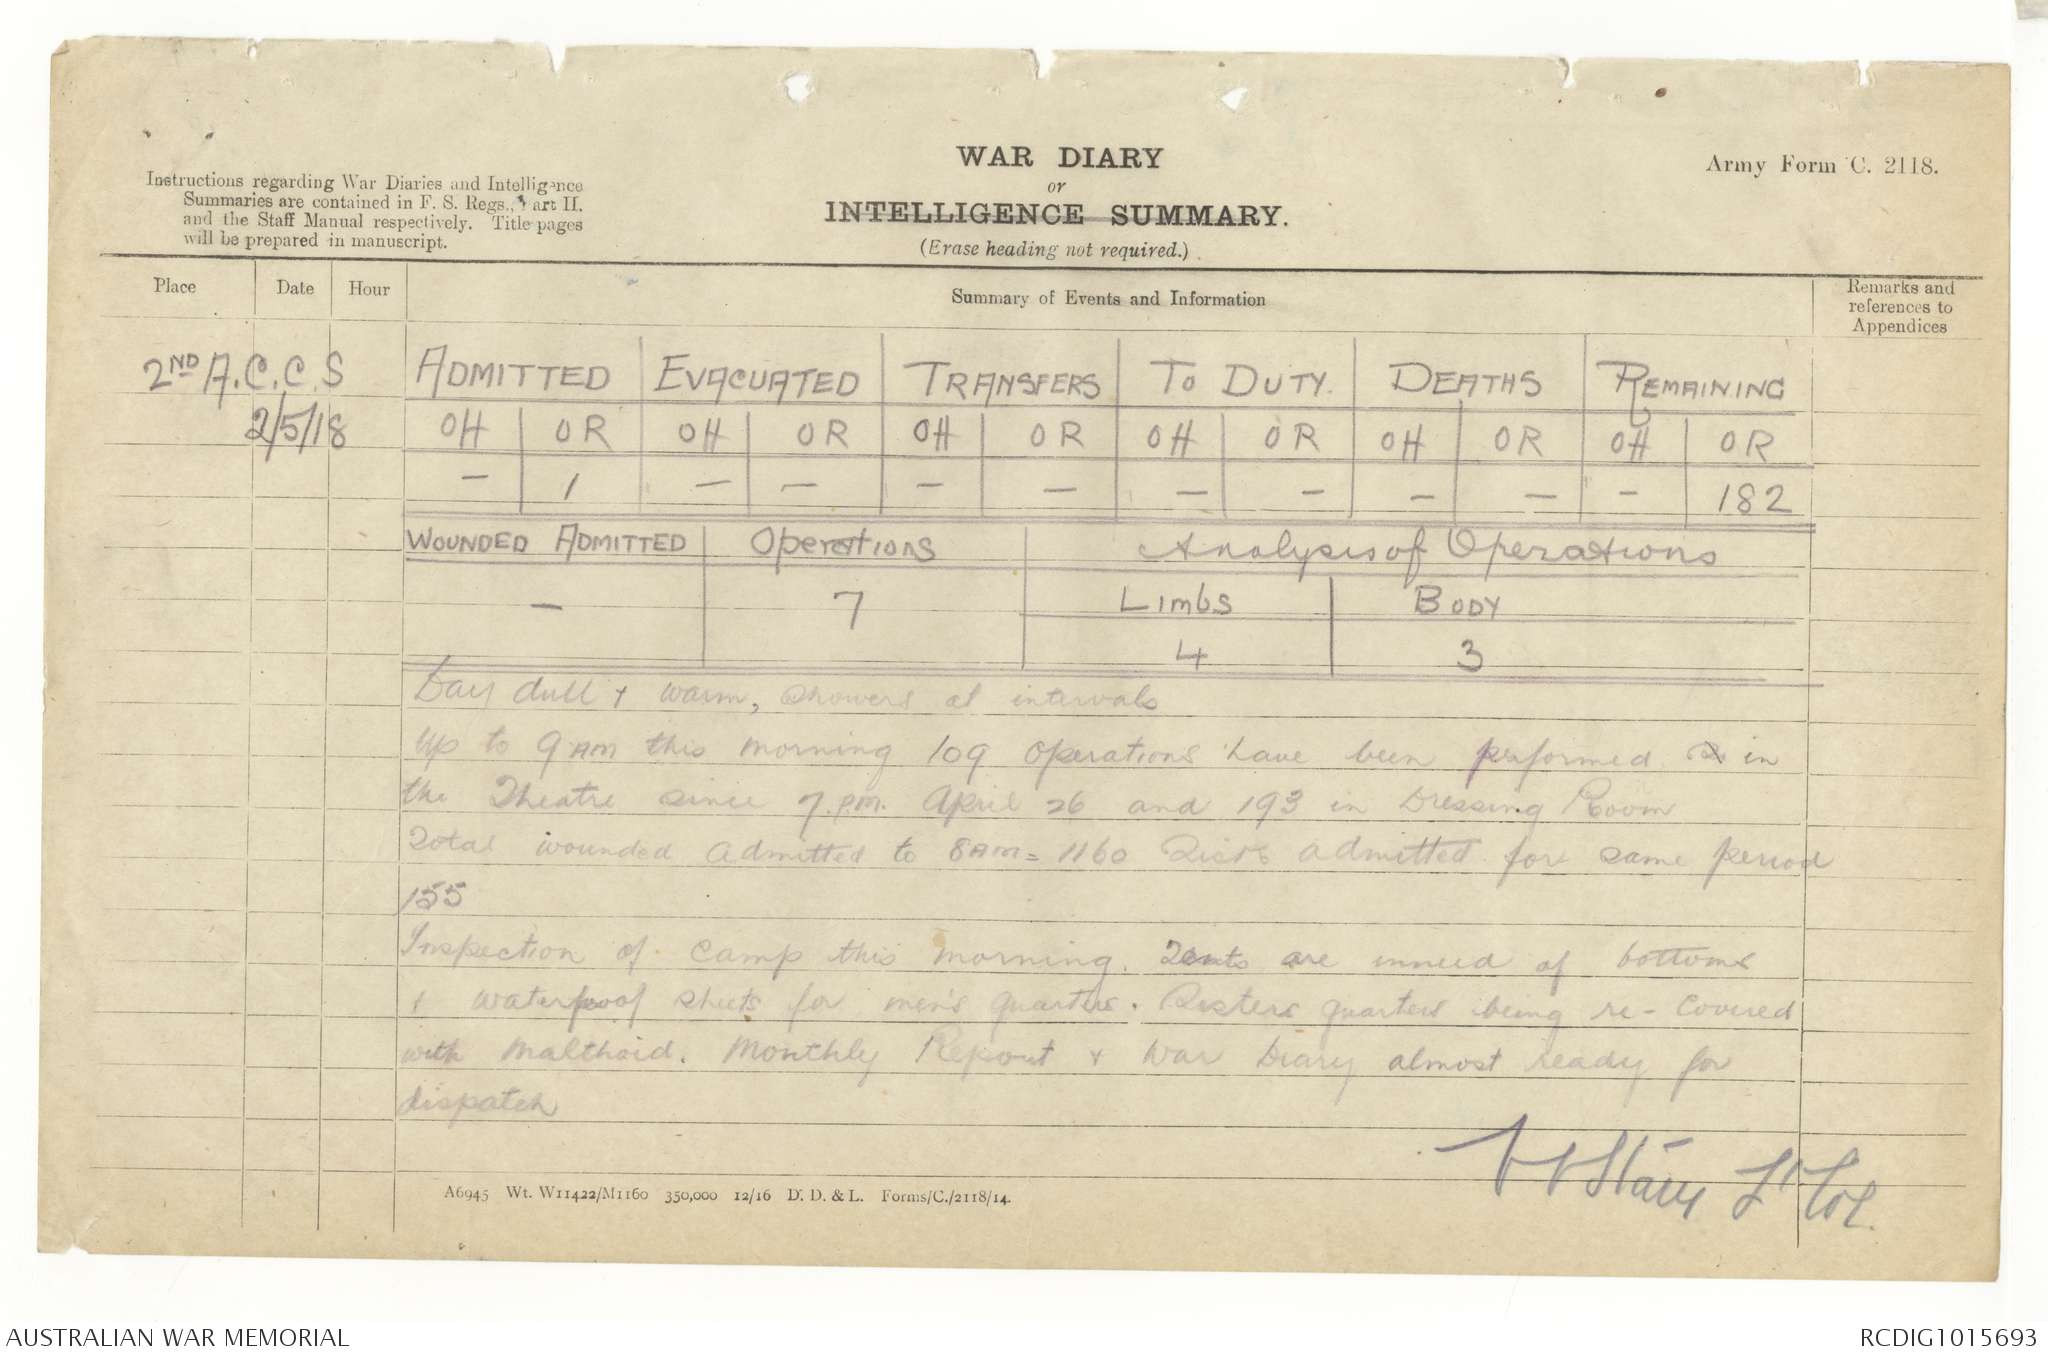 WAR DIARY
or
INTELLIGENCE SUMMARY.
(Erase heading not required.)
Army Form C. 2118.
Instructions regarding War Diaries and Intelligence
Summaries are contained in F. S. Regs., Part II.
and the Staff Manual respectively. Title pages
will be prepared in manuscript.
Place Date Hour Summary of Events and Information Remarks and references to Appendices
2ND A.C.C.S ADMITTED EVACUATED TRANSFERS TO DUTY. DEATHS REMAINING
2/5/18 OH OR OH OR OH OR OH OR OH OR OH OR
— 1 — — — — — — — — — 182
WOUNDED ADMITTED Operations Analysis of Operations
— 7 LIMBS BODY
4 3
Day dull + warm, showers at intervals
Up to 9 AM this morning 109 operations have been performed in
the Theatre since 7.P.M. April 26 and 193 in Dressing Room
Total wounded admitted to 8AM = 1160 admitted for same period
155
Inspection of camp this morning. Tents are of bottoms
+ waterproof sheets for men's quarters. Sisters quarters being re-covered
with Malthoid. Monthly Report + War Diary almost ready for
dispatch
Lt Col.
A6945 Wt. W11422/M1160 350,000 12/16 D. D. & L. Forms/C./2118/14.
AUSTRALIAN WAR MEMORIAL
RCDIG1015693